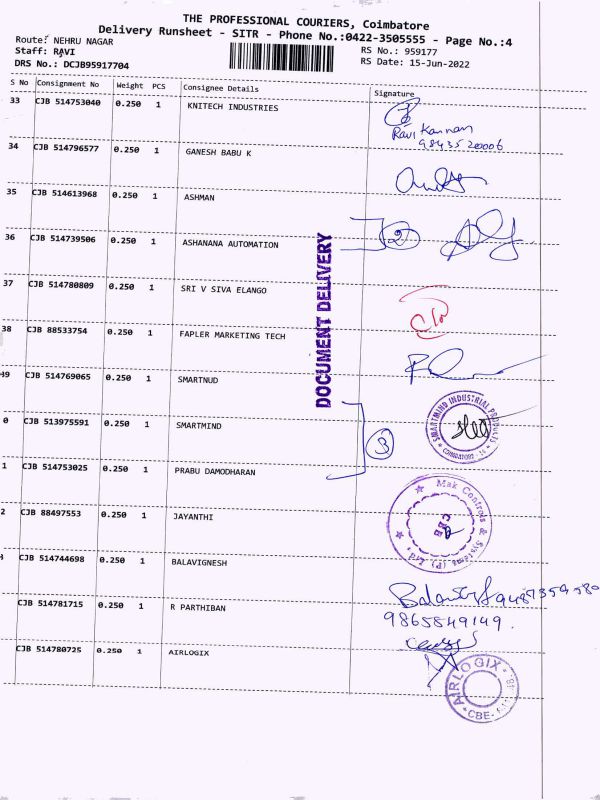 THE PROFESSIONAL COURIERS, Coimbatore
Delivery Runsheet - SITR - Phone No.:0422-3505555 - Page No.:4
Route: NEHRU NAGAR
RS No.: 959177
Staff: RAVI
RS Date: 15-Jun-2022
DRS No.: DCJB95917704
S No Consignment No Weight PCS Consignee Details Signature
33 CJB 514753040 0.250 1 KNITECH INDUSTRIES
Ravi Kannan
9843520006
34 CJB 514796577 0.250 1 GANESH BABU K
35 CJB 514613968 0.250 1 ASHMAN
2
36 CJB 514739506 0.250 1 ASHANANA AUTOMATION
DOCUMENT DELIVERY
37 CJB 514780809 0.250 1 SRI V SIVA ELANGO
38 CJB 88533754 0.250 1 FAPLER MARKETING TECH
39 CJB 514769065 0.250 1 SMARTNUD
SMARTMIND INDUSTRIAL PRODUCTS
0 CJB 513975591 0.250 1 SMARTMIND
3
1 CJB 514753025 0.250 1 PRABU DAMODHARAN
Mak Controls & Systems (P) Ltd.
CBE
2 CJB 88497553 0.250 1 JAYANTHI
CJB 514744698 0.250 1 BALAVIGNESH
CJB 514781715 0.250 1 R PARTHIBAN
9865849149.
CJB 514780725 0.250 1 AIRLOGIX
AIRLOGIX
CBE-